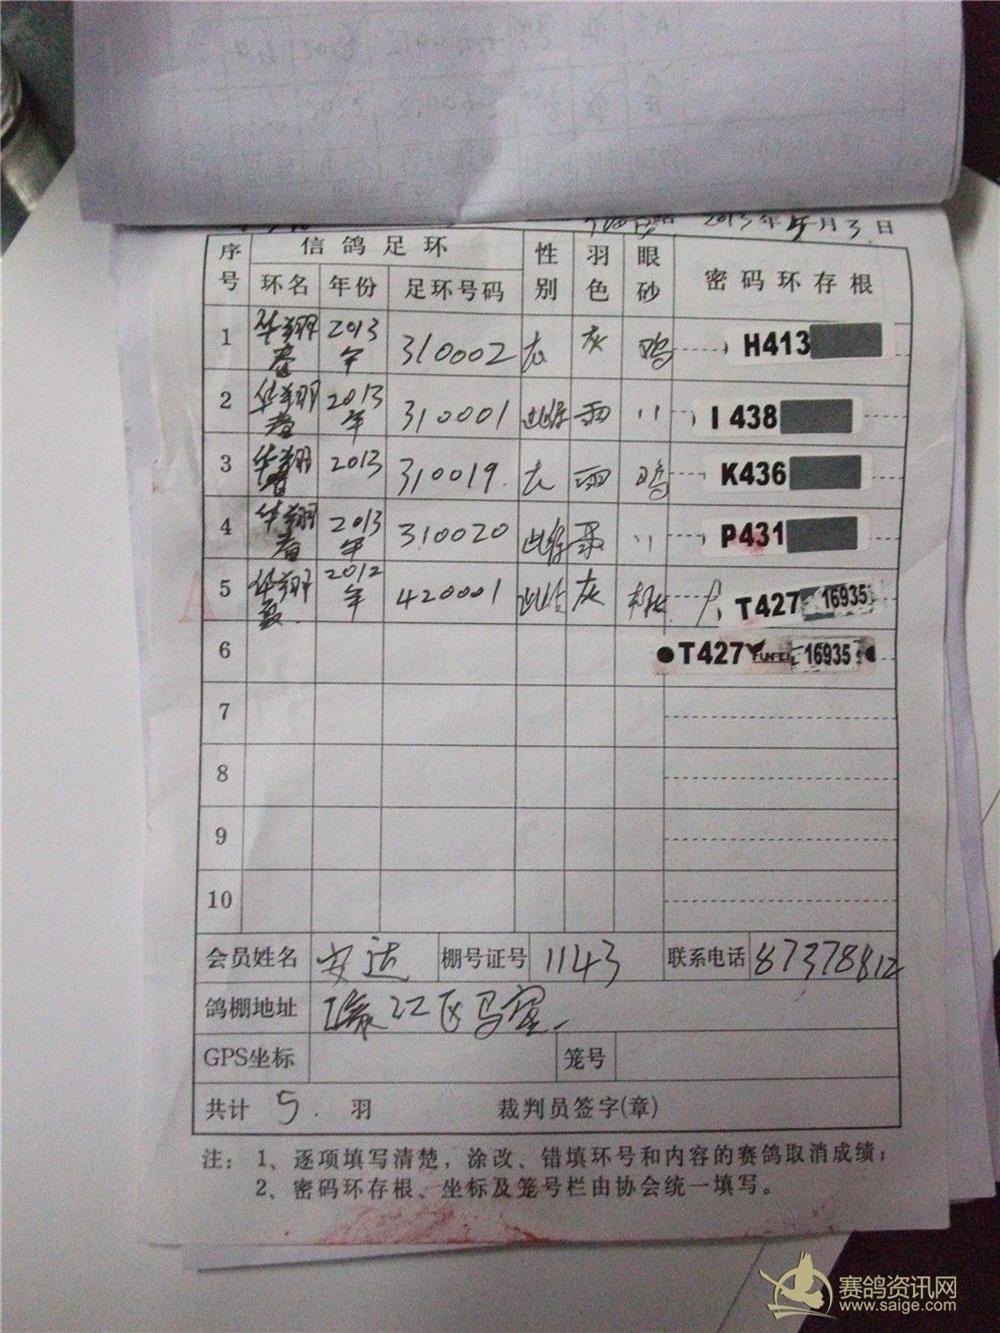 2013年 月3日
序号 信鸽足环 性别 羽色 眼砂 密码环存根
环名 年份 足环号码
1 华翔春 2013年 310002 灰 鸡 H413
2 华翔春 2013年 310001 雌 雨 〃 I 438
3 华翔春 2013 310019 雨 鸡 K436
4 华翔春 2013年 310020 雌 〃 P431
5 华翔夏 2012年 420001 雌 灰 T427 16935
6 T427 16935
7
8
9
10
会员姓名 安达 棚号证号 1143 联系电话 87378812
鸽棚地址 江区马室
GPS坐标 笼号
共计 5. 羽 裁判员签字(章)
注：1、逐项填写清楚，涂改、错填环号和内容的赛鸽取消成绩；
2、密码环存根、坐标及笼号栏由协会统一填写。
赛鸽资讯网
www.saige.com